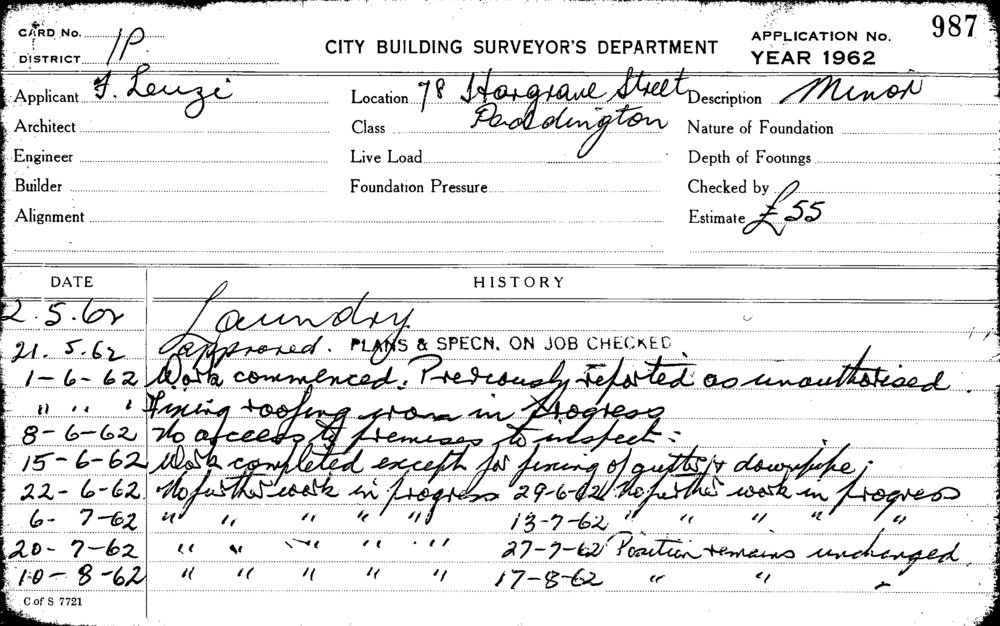 CARD No.
DISTRICT 1P.
CITY BUILDING SURVEYOR'S DEPARTMENT
APPLICATION No. 987
YEAR 1962
Applicant F. Leuzi Location 78 Hargrave Street Description Minor
Architect Class Paddington Nature of Foundation
Engineer Live Load Depth of Footings
Builder Foundation Pressure Checked by
Alignment Estimate £55
DATE HISTORY
2.5.62 Laundry.
21.5.62 approved. PLANS & SPECN. ON JOB CHECKED
1-6-62 Work commenced. Previously reported as unauthorised.
" " " Fixing roofing iron in progress
8-6-62 No access to premises to inspect :
15-6-62 Work completed except for fixing of gutter & downpipe ;
22-6-62 No further work in progress 29-6-62 No further work in progress
6-7-62 " " " " " 13-7-62 " " " " "
20-7-62 " " " " " 27-7-62 Position remains unchanged.
10-8-62 " " " " " 17-8-62 " " "
C of S 7721